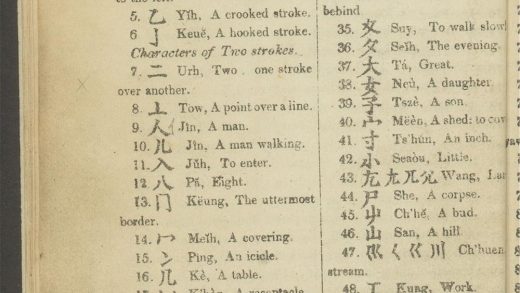 5. 乙 Yĭh, A crooked stroke.
6 亅 Keuĕ, A hooked stroke.
Characters of Two strokes.
7. 二 Urh, Two . one stroke
over another.
8. 亠 Tow, A point over a line.
9. 人 Jîn, A man.
10. 儿 Jîn, A man walking.
11. 入 Jŭh, To enter.
12 八 Pă, Eight.
13. 冂 Keung, The uttermost
border.
14. 冖 Meĭh, A covering.
15. 冫 Ping, An icicle.
16. 几 Kè, A table.
behind
35. 夊 Suy, To walk slowl
36. 夕 Seĭh, The evening.
37. 大 Tá, Great.
38. 女 Neù, A daughter.
39. 子 Tszè, A son.
40. 宀 Mëèn, A shed: to cov
41. 寸 Ts'hún, An inch.
42. 小 Seaòu, Little.
43. 尢 尣 兀 尪 Wang, La
44. 尸 She, A corpse.
45. 屮 Ch'hĕ, A bud.
46. 山 San, A hill.
47. 巛 く 巜 川 Ch'huen
stream.
48. 工 Kung, Work.